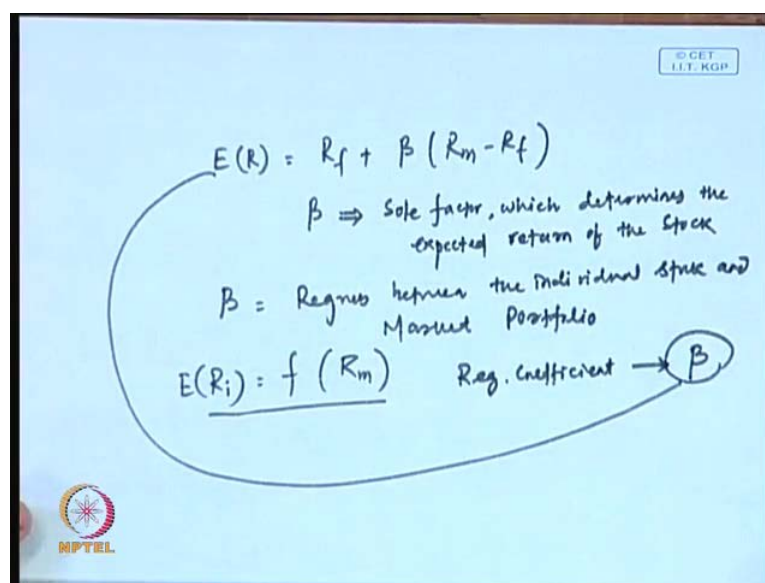 © CET
I.I.T. KGP
E(R) = Rf + β (Rm - Rf)
β ⇒ Sole factor, which determines the
expected return of the Stock
β = Regress between the individual stock and
Market Portfolio
E(Ri) = f (Rm) Reg. Coefficient → β
NPTEL